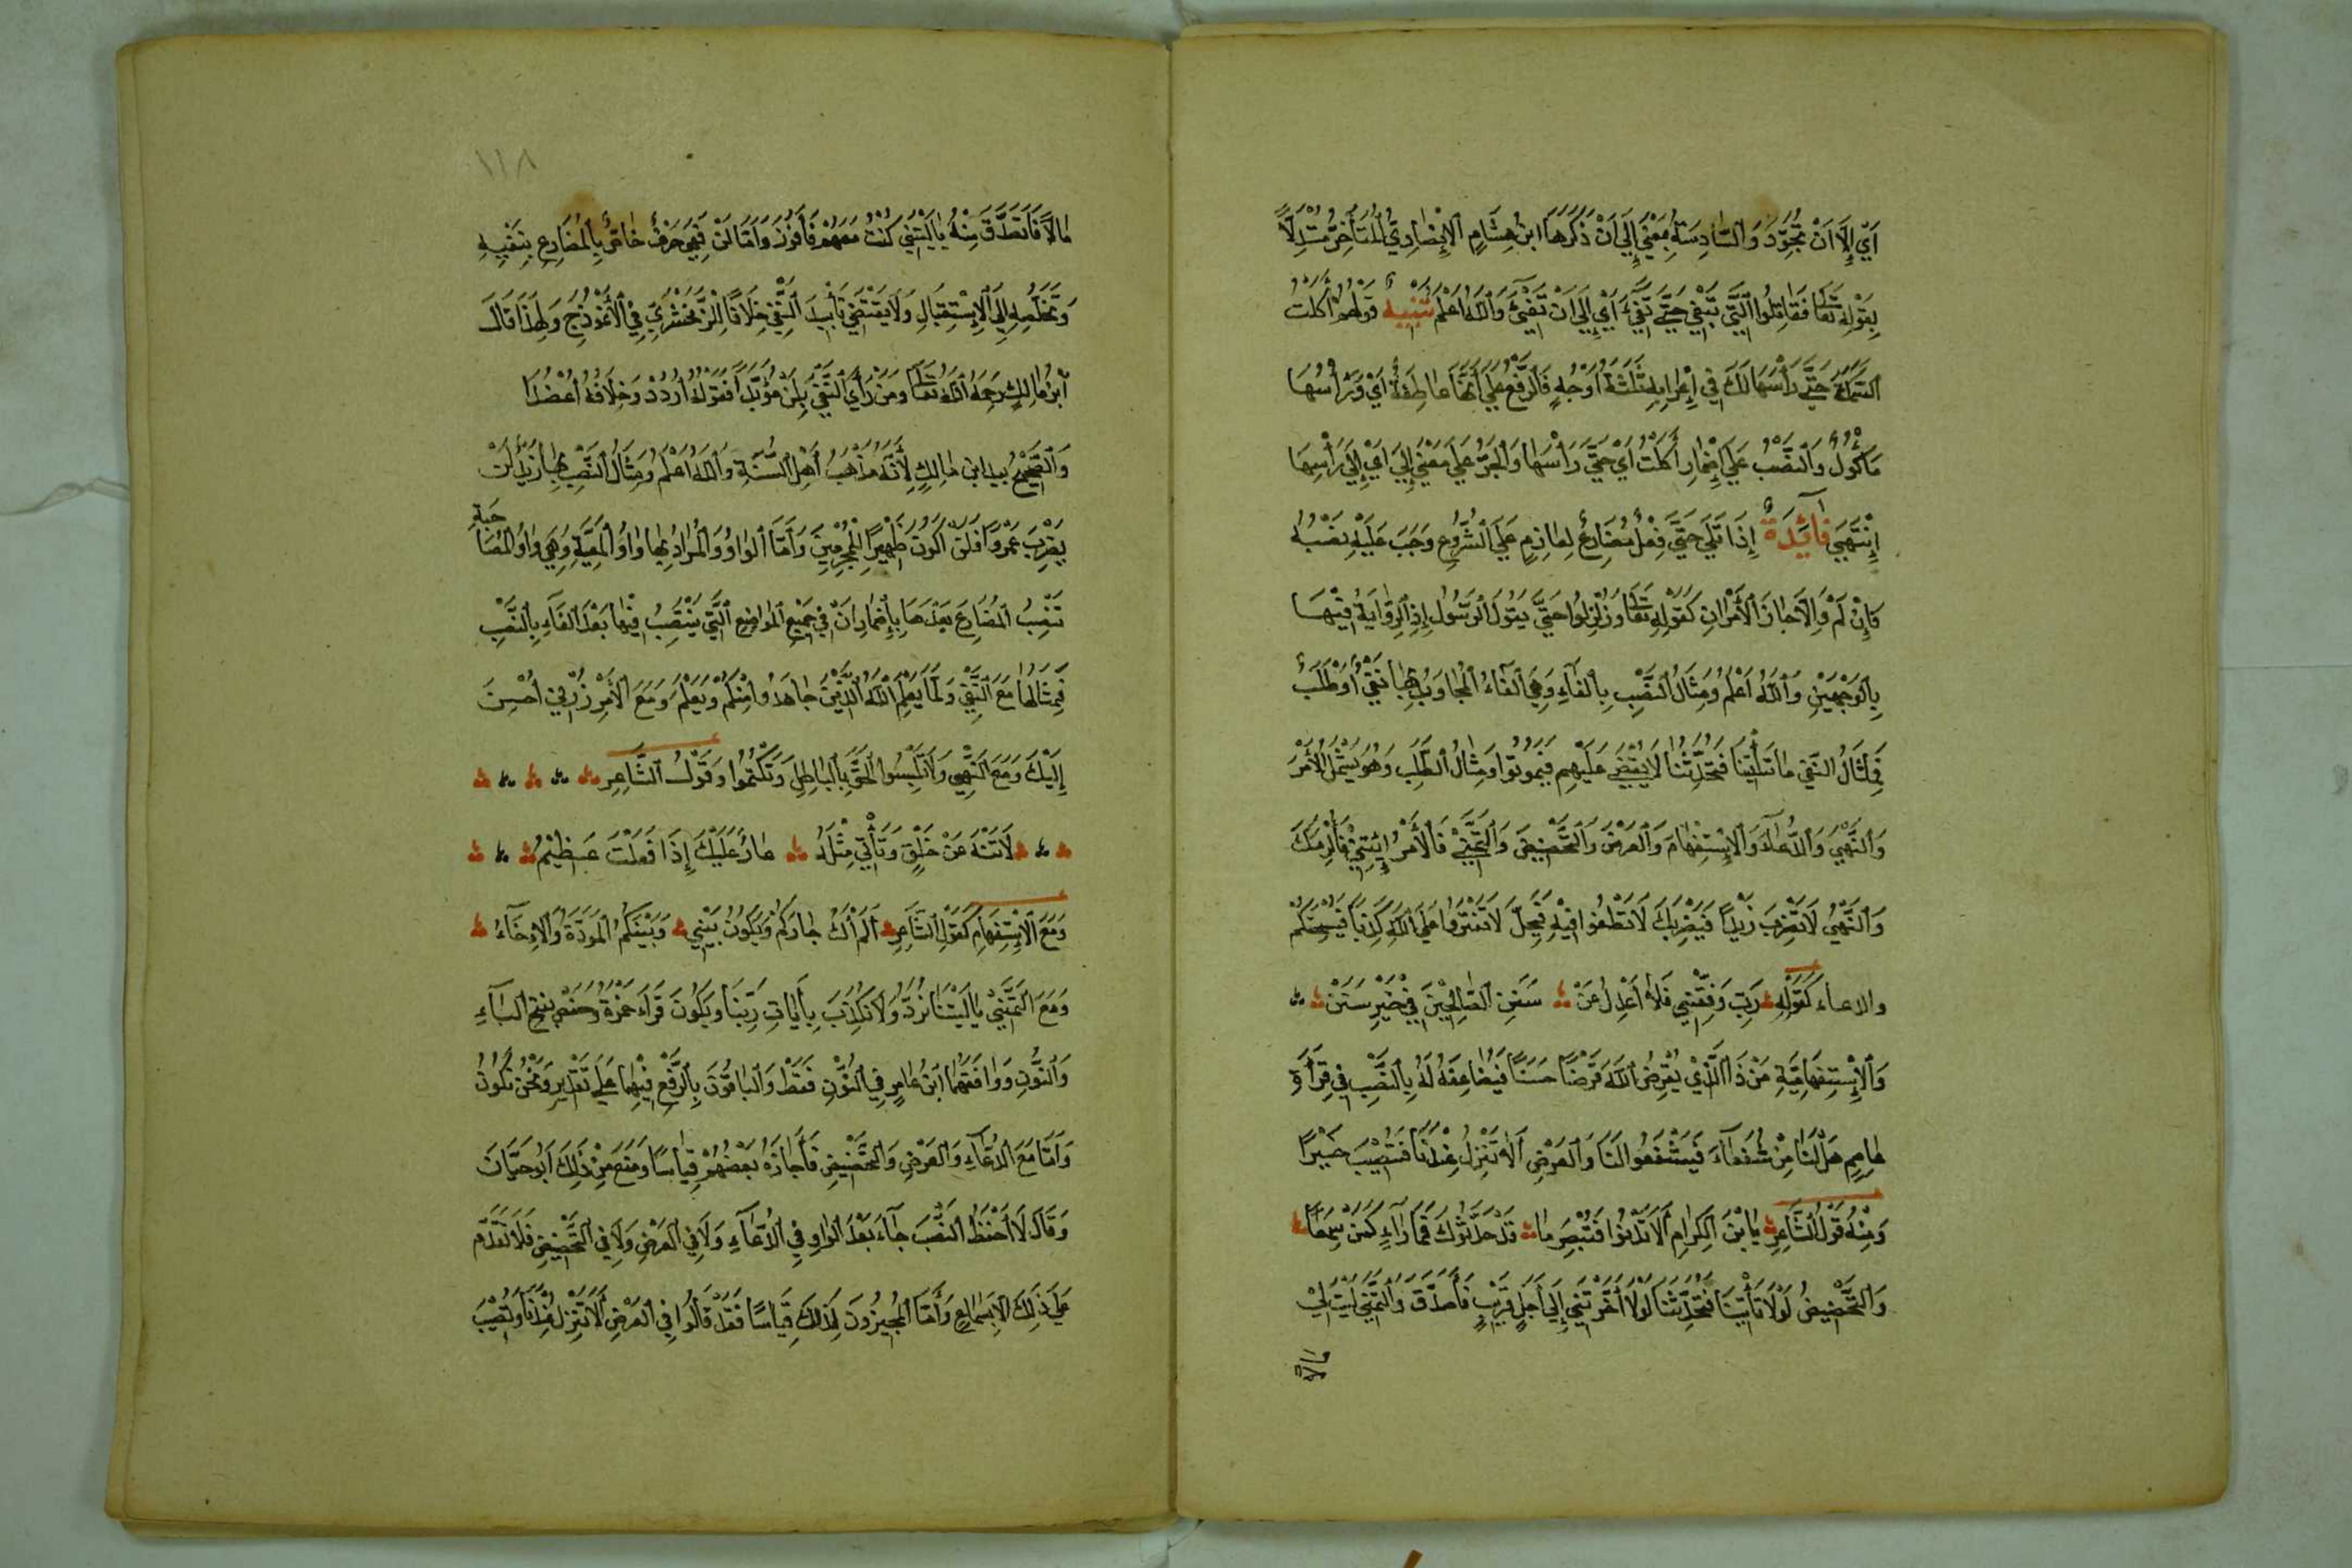 اَيْ اِلَّا اَنْ تَجُوْدَ وَالسَّادِسَةُ بِمَعْنَي اِلَي اَنْ ذَكَرَهَا ابْنُ هِشَامٍ الْاَنْصَارِيُّ الْمُتَأَخِّرُ مُسْتَدِلًّا
بِقَوْلِهِ تَعَالَى فَقَاتِلُوا الَّتِي تَبْغِي حَتَّي تَفِيْءَ اَيْ اِلَي اَنْ تَفِيْءَ وَاللّٰهُ اَعْلَمُ تَنْبِيهٌ قَوْلُهُمْ اَكَلْتُ
السَّمَكَةَ حَتَّي رَأْسَهَا لَكَ فِي اِعْرَابِهِ ثَلٰثَةُ اَوْجُهٍ فَالرَّفْعُ عَلَي اَنَّهَا عَاطِفَةٌ اَيْ وَرَأْسُهَا
مَأْكُوْلٌ وَالنَّصْبُ عَلَي اِضْمَارِ اَكَلْتُ اَيْ حَتَّي رَأْسَهَا وَالْجَرُّ عَلَي مَعْنَي اِلَي اَيْ اِلَي رَأْسِهَا
اِنْتَهَيَ فَائِدَةٌ اِذَا تَلَي حَتَّي فِعْلٌ مُضَارِعٌ لِعَازِمٍ عَلَي الشُّرُوْعِ وَجَبَ عَلَيْهِ نَصْبُهُ
فَاِنْ لَمْ وَاِلَّا جَازَ الْاَمْرَانِ كَقَوْلِهِ تَعَالَى وَزُلْزِلُوا حَتَّي يَقُوْلَ الرَّسُوْلُ اِذِ الرِّوَايَةُ فِيْهَا
بِالْوَجْهَيْنِ وَاللّٰهُ اَعْلَمُ وَمِثَالُ النَّصْبِ بِالْفَاءِ وَهِيَ الْفَاءُ الْمُجَاوَبُ بِهَا نَفْيٌ اَوْ طَلَبٌ
فَمِثَالُ النَّفْيِ مَا تَأْتِيْنَا فَتُحَدِّثَنَا لَا يُقْضَي عَلَيْهِمْ فَيَمُوْتُوا وَمِثَالُ الطَّلَبِ وَهُوَ يَشْمُلُ الْاَمْرَ
وَالنَّهْيَ وَالدُّعَاءَ وَالْاِسْتِفْهَامَ وَالْعَرْضَ وَالتَّحْضِيْضَ وَالتَّمَنِّيَ فَالْاَمْرُ اِيْتِنِي فَاُكْرِمَكَ
وَالنَّهْيُ لَا تَضْرِبْ زَيْدًا فَيَضْرِبَكَ لَا تَطْغَوْا فِيْهِ فَيَحِلَّ لَا تَفْتَرُوا عَلَي اللّٰهِ كَذِبًا فَيُسْحِتَكُمْ
والدعاء كَقَوْلِهِ رَبِّ وَفِّقْنِي فَلَا اَعْدِلَ عَنْ سَنَنِ الصَّالِحِيْنَ فِي خَيْرِ سَنَنْ
وَالْاِسْتِفْهَامِيَّةِ مَنْ ذَا الَّذِي يُقْرِضُ اللّٰهَ قَرْضًا حَسَنًا فَيُضَاعِفَهُ لَهُ بِالنَّصْبِ فِي قِرَأَةِ
عَاصِمٍ هَلْ لَنَا مِنْ شُفَعَاءَ فَيَشْفَعُوا لَنَا وَالْعَرْضِ اَلَا تَنْزِلُ عِنْدَنَا فَتُصِيْبَ خَيْرًا
وَمِنْهُ قَوْلُ الشَّاعِرِ يَا ابْنَ الْكِرَامِ اَلَا تَدْنُوْا فَتُبْصِرَ مَا قَدْ حَدَّثُوكَ فَمَا رَاءٍ كَمَنْ سَمِعَا
وَالتَّحْضِيْضُ لَوْلَا تَأْتِيْنَا فَتُحَدِّثَنَا لَوْلَا اَخَّرْتَنِي اِلَي اَجَلٍ قَرِيْبٍ فَاَصَّدَّقَ وَالتَّمَنِّي لَيْتَ لِيْ
مالا
١١٨
مَالًا فَاَتَصَدَّقَ مِنْهُ يَا لَيْتَنِي كُنْتُ مَعَهُمْ فَاَفُوْزَ وَاَمَّا لَنْ فَهِيَ حَرْفٌ خَاصٌّ بِالْمُضَارِعِ بِنَفْيِهِ
وَتُخَلِّصُهِ اِلَي الْاِسْتِقْبَالِ وَلَا يَقْتَضِي تَأْبِيْدَ النَّفْيِ خِلَافًا لِلزَّمَخْشَرِيِّ فِي الْاَنْمُوْذَجِ وَلِهَذَا قَالَ
اَبْنُ مَالِكٍ رَحِمَهُ اللّٰهُ تَعَالَى وَمَنْ رَأَي النَّفْيَ بِلَنْ مُؤَبَّدَا فَقَوْلَهُ ارْدُدْ وَخِلَافَهُ اعْضُدَا
وَالصَّحِيْحُ بيد ابن مَالِكٍ لِاَنَّهُ مَذْهَبُ اَهْلِ السُّنَّةِ وَاللّٰهُ اَعْلَمُ وَمِثَالُ النَّصْبِ بِهَا زَيْدٌ لَنْ
يَضْرِبَ عَمْرًوا فَلَنْ اَكُوْنَ ظَهِيْرًا لِلْمُجْرِمِيْنَ وَاَمَّا الْوَاوُ وَالْمُرَادُ بِهَا وَاوُ الْمَعِيَّةِ وَهِيَ وَاوُ الْمُصَاحَبَةِ
تَنْصِبُ الْمُضَارِعَ بَعْدَهَا بِاِضْمَارِ اَنْ فِي جَمِيْعِ الْمَوَاضِعِ الَّتِي يَنْتَصِبُ فِيْهَا بَعْدَ الْفَاءِ بِالنَّصْبِ
فَمِثَالُهَا مَعَ النَّفْيِ وَلَمَّا يَعْلَمِ اللّٰهُ الَّذِيْنَ جَاهَدُوا مِنْكُمْ وَيَعْلَمَ وَمَعَ الْاَمْرِ زُرْنِي اُحْسِنَ
اِلَيْكَ وَمَعَ النَّهْيِ وَلَا تَلْبِسُوا الْحَقَّ بِالْبَاطِلِ وَتَكْتُمُوا وَقَوْلُ الشَّاعِرِ
لَا تَنْهَ عَنْ خُلُقٍ وَتَأْتِيَ مِثْلَهُ عَارٌ عَلَيْكَ اِذَا فَعَلْتَ عَظِيْمُ
وَمَعَ الْاِسْتِفْهَامِ كَقَوْلِ الشَّاعِرِ اَلَمْ اَكُ جَارَكُمْ وَيَكُوْنَ بَيْنِي وَبَيْنَكُمُ الْمَوَدَّةُ وَالْاِخَاءُ
وَمَعَ التَّمَنِّيْ يَا لَيْتَنَا نُرَدُّ وَلَا نُكَذِّبَ بِاٰيَاتِ رَبِّنَا وَيَكُوْنَ قَرَاءَ حَمْزَةُ وحفص بِفَتْحِ الْبَاءِ
وَالنُّوْنِ وَوَافَقَهُمَا ابْنُ عَامِرٍ فِي النُّوْنِ فَقَطْ وَالْبَاقُوْنَ بِالرَّفْعِ فِيْهِمَا عَلَي تَقْدِيْرِ وَنَحْنُ نَكُوْنُ
وَاَمَّا مَعَ الدُّعَاءِ وَالْعَرْضِ وَالتَّحْضِيْضِ فَاَجَازَهُ بَعْضُهُمْ قِيَاسًا وَمَنَعَ مِنْ ذَلِكَ اَبُو حَيَّانَ
وَقَالَ لَا اَحْفَظُ النَّصْبَ جَاءَ بَعْدَ الْوَاوِ فِي الدُّعَاءِ وَلَا فِي الْعَرْضِ وَلَا فِي التَّحْضِيْضِ فَلَا نُقْدِمُ
عَلَي ذَلِكَ اِلَّا بِسَمَاعٍ وَاَمَّا الْمُجِيْزُوْنَ لِذَلِكَ قِيَاسًا فَقَدْ قَالُوا فِي الْعَرْضِ اَلَا تَنْزِلُ عِنْدَنَا وَتُصِيْبَ